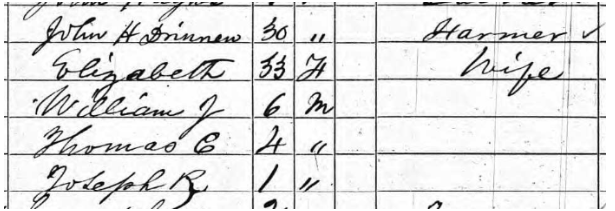 John H Drinnen 30 " Farmer ✓
Elizabeth 33 F Wife
William J 6 M
Thomas C 4 "
Joseph R 1 "